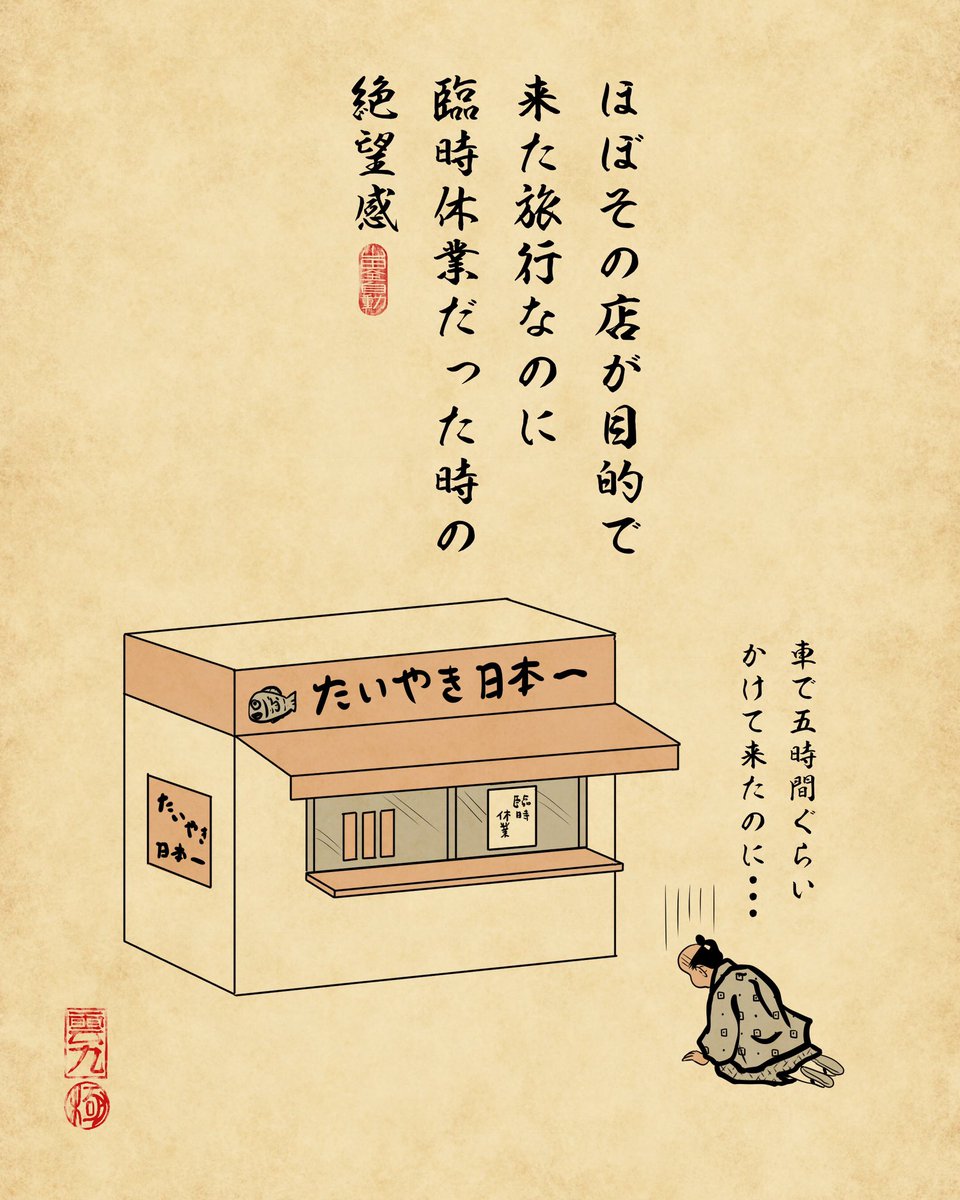 ほぼその店が目的で
来た旅行なのに
臨時休業だった時の
絶望感
車で五時間ぐらい
かけて来たのに・・・
たいやき日本一
たいやき
日本一
臨時
休業